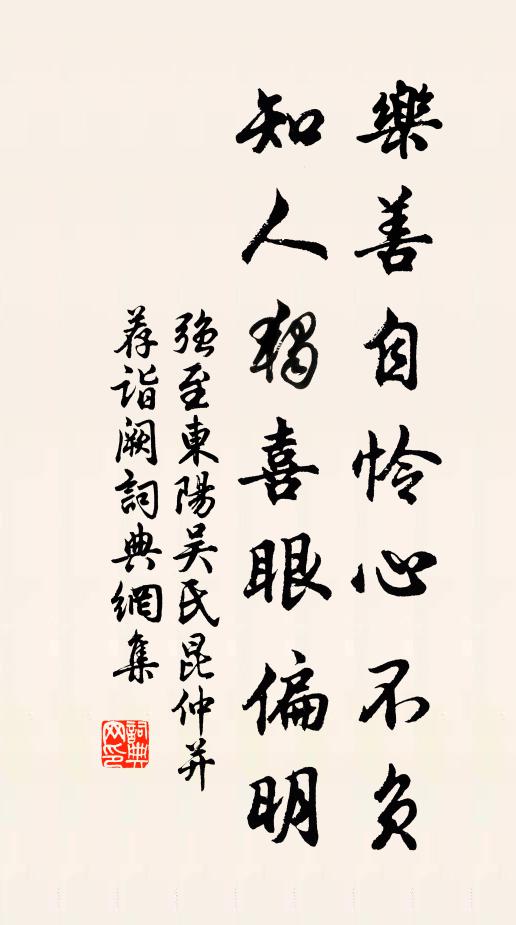 樂善自怜心不负
知人獨喜眼偏明
强至東陽吴氏昆仲并
荐詣阙詞典網集
詞典网印